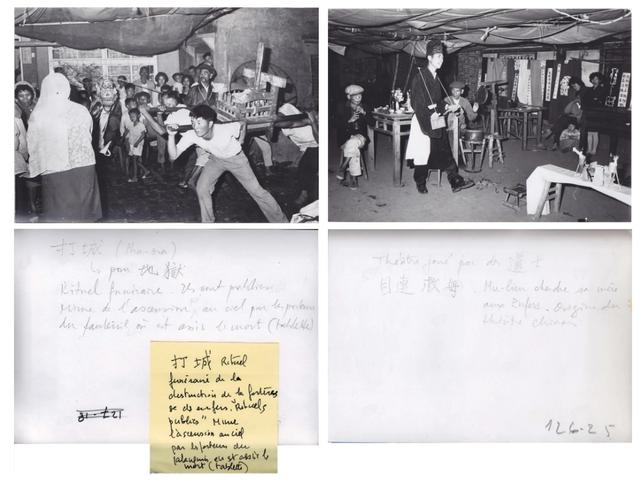 打城
地獄
Rituel funéraire. Ils sont publics.
Mime de l'ascension au ciel par les porteurs
du fauteuil où est assis le mort (tablette)
打城 Rituel
funéraire de la
destruction de la forteres
se des enfers. "Rituels
publics" Mime
l'ascension au ciel
par les porteurs du
palanquin où est assis le
mort (tablette)
Théâtre joué par des 道士
目連 救母. Mu-lien cherche sa mère
aux Enfers. Origine du
théâtre chinois
126-25